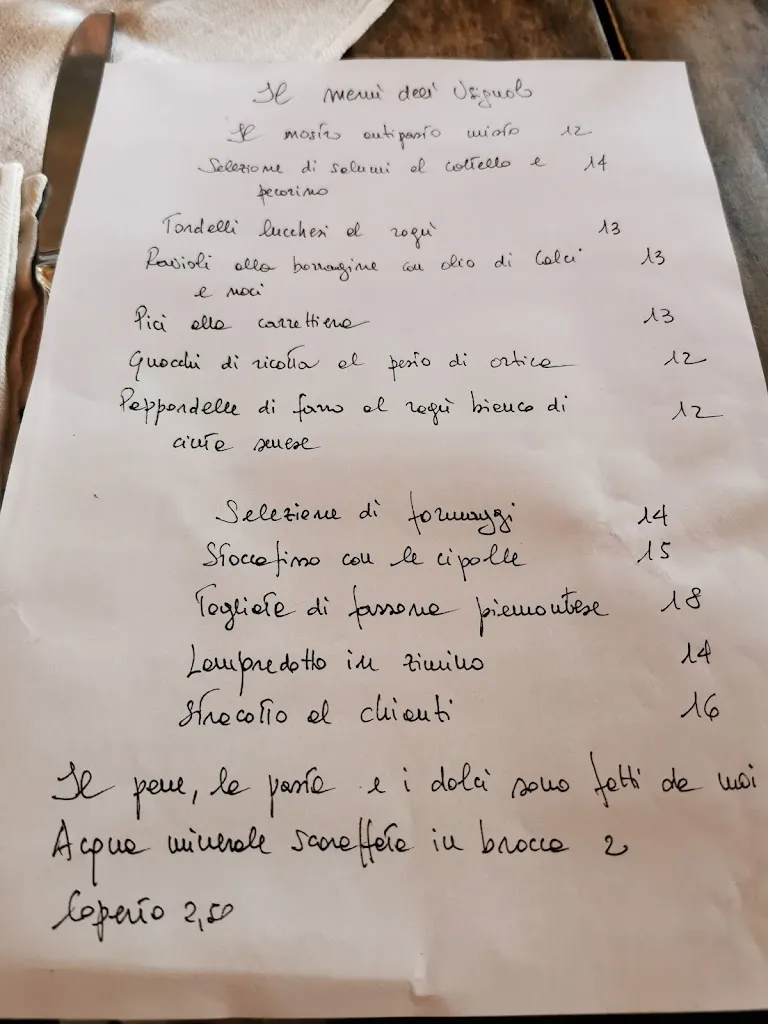 Il menù dell' Usignolo
Il nostro antipasto misto 12
Selezione di salumi al coltello e 14
pecorino
Tordelli lucchesi al ragù 13
Ravioli alla borragine con olio di Calci 13
e noci
Pici alla carrettiera 13
Gnocchi di ricotta al pesto di ortica 12
Pappardelle di farro al ragù bianco di 12
cinta senese
Selezione di formaggi 14
Stoccafisso con le cipolle 15
Tagliata di fassona piemontese 18
Lampredotto in zimino 14
Stracotto al chianti 16
Il pane, la pasta e i dolci sono fatti da noi
Acqua minerale scaraffata in brocca 2
Coperto 2,50